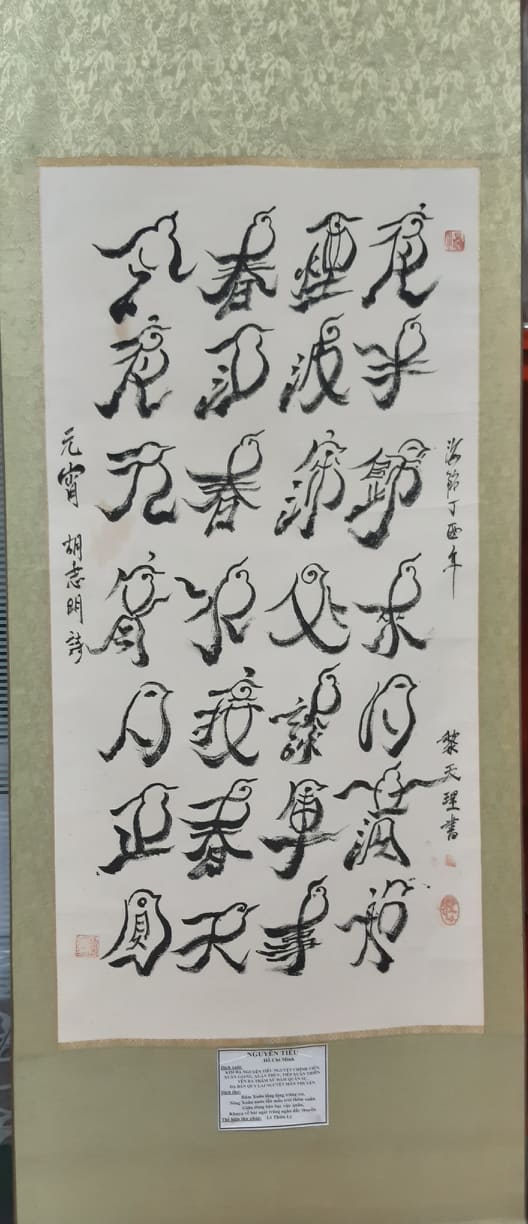 元宵 胡志明詩
今夜元宵月正圓
春江春水接春天
煙波深处談軍事
夜半歸來月滿船
節丁酉年
黎天理書
NGUYÊN TIÊU
Hồ Chí Minh
KIM DẠ NGUYÊN TIÊU NGUYỆT CHÍNH VIÊN,
XUÂN GIANG, XUÂN THỦY, TIẾP XUÂN THIÊN
YÊN BA THÂM XỨ ĐÀM QUÂN SỰ,
DẠ BÁN QUY LAI NGUYỆT MÃN THUYỀN
Dịch thơ:
Rằm Xuân lồng lộng trăng soi,
Sông Xuân nước lẫn màu trời thêm xuân.
Giữa dòng bàn bạc việc quân,
Khuya về bát ngát trăng ngân đầy thuyền
Thể hiện thư pháp: Lê Thiên Lý